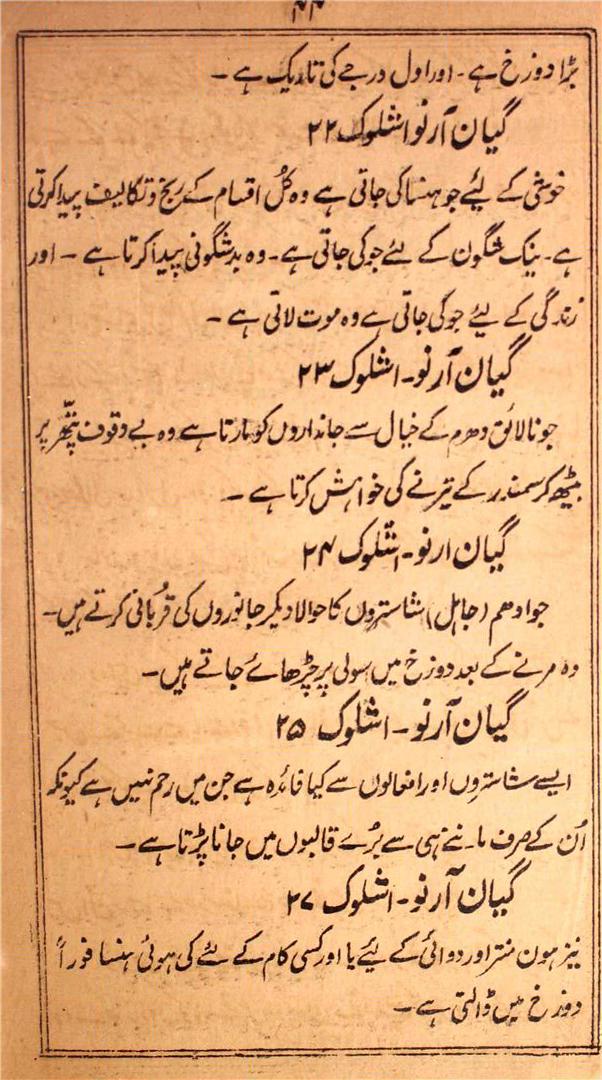 ۴۴
بڑا دوزخ ہے ۔ اور اول درجے کی تاریک ہے ۔
گیان آرنو اشلوک ۲۲
خوشی کے لیئے جو ہنسا کی جاتی ہے وہ کُل اقسام کے رنج و تکالیف پیدا کرتی
ہے ۔ نیک شگون کے لئے جو کی جاتی ہے ۔ وہ بدشگونی پیدا کرتا ہے ۔ اور
زندگی کے لیئے جو کی جاتی ہے وہ موت لاتی ہے ۔
گیان آرنو ۔ اشلوک ۲۳
جو نالائق دھرم کے خیال سے جانداروں کو مارتا ہے وہ بے وقوف پتّھر پر
بیٹھ کر سمندر کے تیرنے کی خواہش کرتا ہے ۔
گیان ارنو ۔ اشلوک ۲۴
جو ادھم (جاہل) شاستروں کا حوالا دیکر جانوروں کی قربانی کرتے ہیں ۔
وہ مرنے کے بعد دوزخ میں سولی پر چڑھائے جاتے ہیں ۔
گیان آرنو ۔ اشلوک ۲۵
ایسے شاستروں اور افعالوں سے کیا فائدہ ہے جن میں رحم نہیں ہے کیونکہ
اُن کے صرف ماننے ہی سے بُرے قالبوں میں جانا پڑتا ہے ۔
گیان آرنو ۔ اشلوک ۲۷
نیز ہون منتر اور دوائی کے لیئے یا اور کسی کام کے لئے کی ہوئی ہنسا فوراً
دوزخ میں ڈالتی ہے ۔